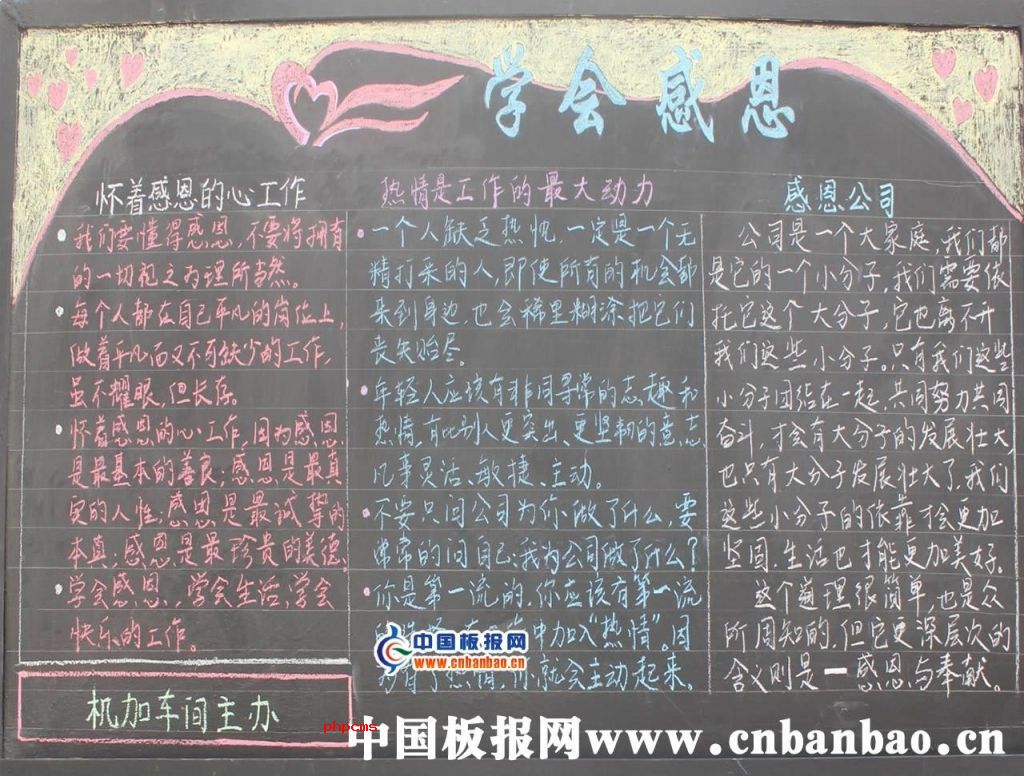 学会感恩
怀着感恩的心工作
我们要懂得感恩,不要将拥有
的一切视之为理所当然。
每个人都在自己平凡的岗位上,
做着平凡而又不可缺少的工作,
虽不耀眼,但长存。
怀着感恩的心工作,因为感恩
是最基本的善良;感恩是最真
实的人性;感恩是最诚挚的
本真;感恩是最珍贵的美德
学会感恩,学会生活,学会
快乐的工作。
机加车间主办
热情是工作的最大动力
一个人缺乏热忱,一定是一个无
精打采的人,即使所有的机会都
来到身边,也会稀里糊涂把它们
丧失贻尽。
年轻人应该有非同寻常的志趣和
热情,有比别人更突出、更坚韧的意志
凡事灵活、敏捷、主动。
不要只问公司为你做了什么,要
常常的问自己:我为公司做了什么?
你是第一流的,你应该有第一流
中加入“热情”。因
有了热情,你就会主动起来。
感恩公司
公司是一个大家庭,我们都
是它的一个小分子,我们需要依
托它这个大分子,它也离不开
我们这些小分子。只有我们这些
小分子团结在一起,共同努力共同
奋斗,才会有大分子的发展壮大,
也只有大分子发展壮大了,我们
这些小分子的依靠才会更加
坚固,生活也才能更加美好。
这个道理很简单,也是众
所周知的,但它更深层次的
含义则是一感恩与奉献。
中国板报网
www.cnbanbao.cn
phpcms
中国板报网www.cnbanbao.cn